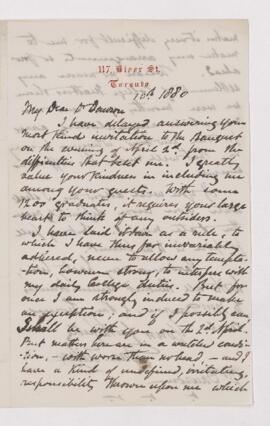 117 Bloor St.
Toronto
10th 1880
My Dear Dr Dawson
I have delayed answering your
most kind invitation to the Banquet
on the evening of April 2d, from the
difficulties that beset me. I greatly
value your kindness in including me
among your guests. With some
120 graduates, it requires your large
heart to think of any outsiders.
I have laid it down as a rule, to
which I have thus far invariably
adhered, never to allow any tempta-
tion, however strong, to interfere with
my daily College duties. But for
once I am strongly induced to make
an exception; and if I possibly can
I shall be with you on the 2d April.
But matters here are in a wretched condi-
tion, - with worse than no head, - and I
have a kind of undefined, irritating,
responsibility thrown upon me which